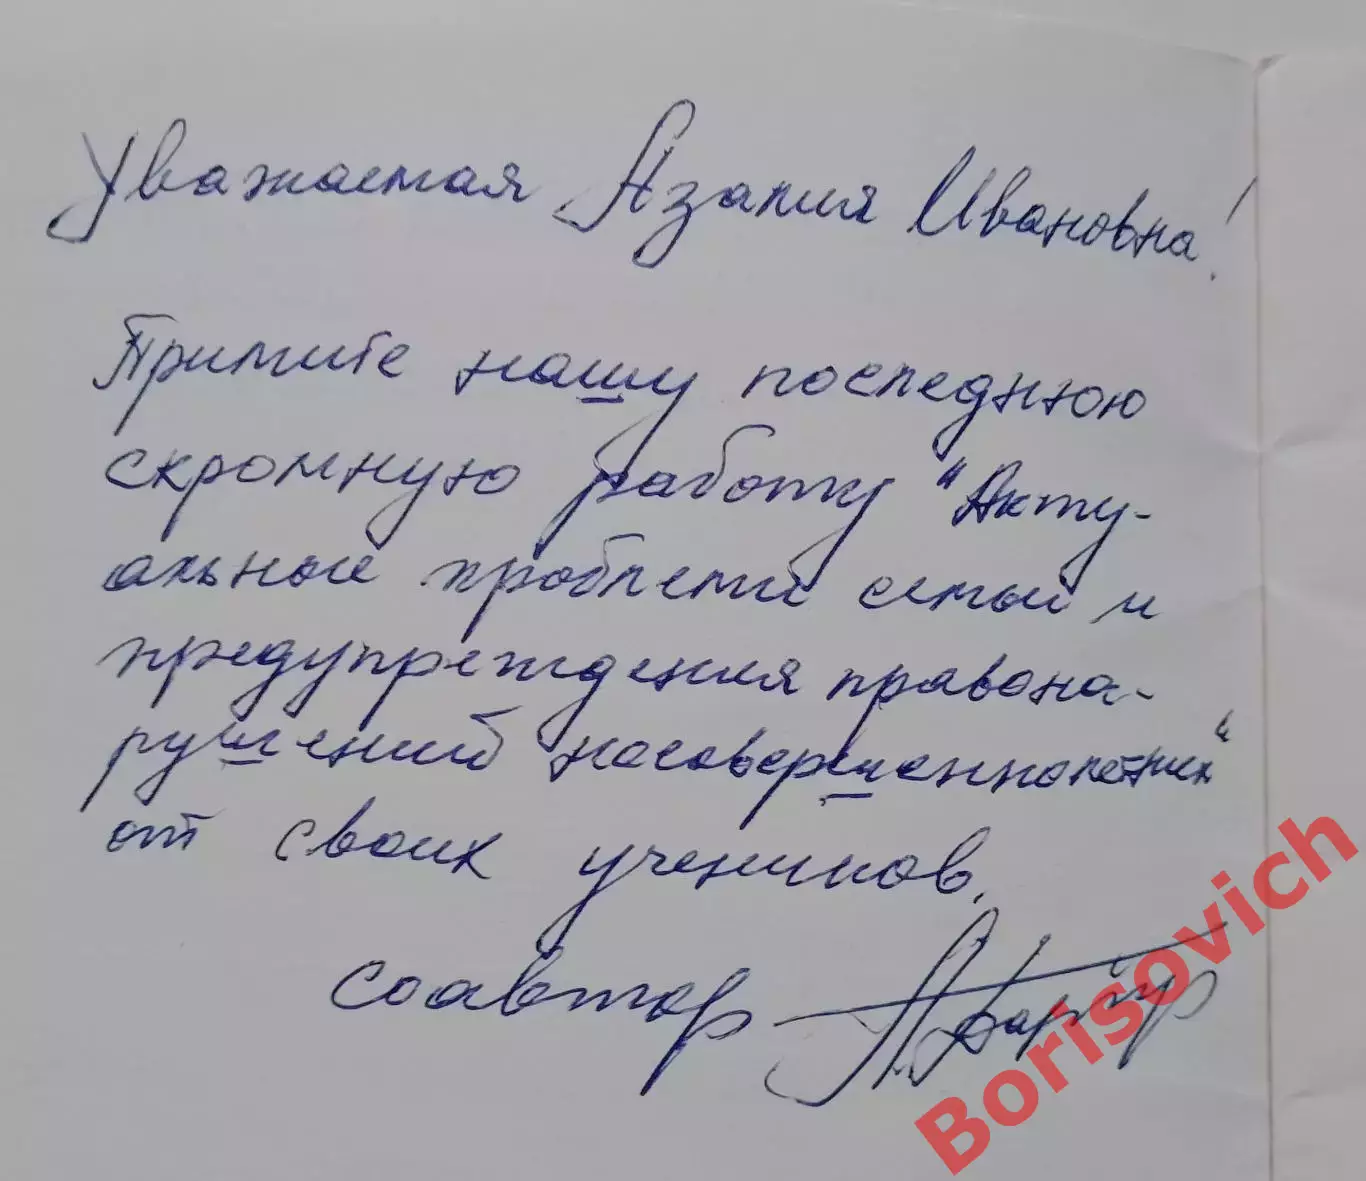 Уважаемая Азалия Ивановна!
Примите нашу последнюю
скромную работу "Акту-
альные проблемы семьи и
предупреждения правона-
рушений несовершеннолетних"
от своих учеников.
соавтор
Borisovich